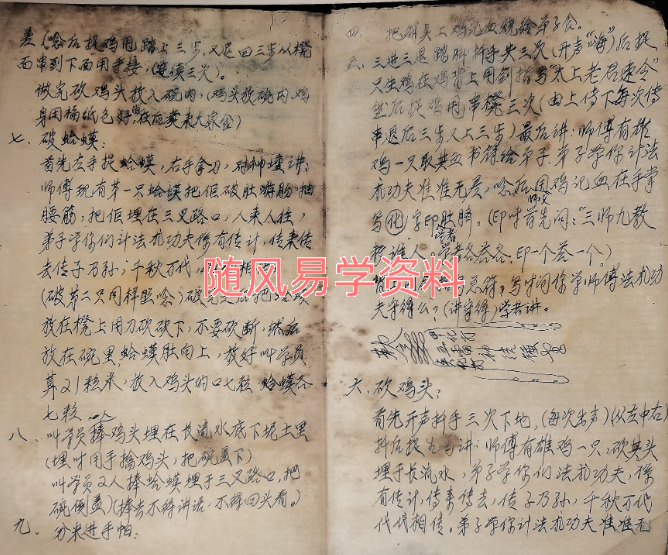 差(念后捉鸡甩踏上三步,又退回三步从櫈
面串到下面用手接,(连续三次)。
做完砍鸡头放入碗内,(鸡头放碗内,鸡
身用福纸包好,大家食)
七、破蛤蟆:
首先左手捉蛤蟆,右手拿刀,讲:
师傅现有第一只蛤蟆把佢破肚抽
腰筋,把佢埋在三叉路口,人来人往,
弟子学你们计法扎功夫保有传计,传来传
去传子乃孙,千秋万代,相
(破第二只同样照念)破完
放在櫈上用刀砍砍下,不要砍断,然后
放在碗里蛤蟆肚向上,放好叫学员
算21粒米,放入鸡头的口七粒蛤蟆各
七粒
八、叫学员捧鸡头埋在长流水底下坭土里
(埋时用手捡鸡头,把碗盖下)
叫学员2人捧蛤蟆埋于三叉路口,把
碗倒盖)(捧去不得讲话,不得回头看。)
九、分米进手帕:
四、把鸡头上鸡记血烧给弟子食。
五、三进三退踏脚抖手尖三次(开声"海)后捉
只生鸡在鸡背上用剑指写"太上老君速令"
然后捉鸡甩串櫈三次(由上传下每次传
串退后三步又上三步)最后讲:师傅有雄
鸡一只取其血书符给弟子,弟子学你计法
扎功夫准准无差,念后用鸡记血在手掌
写字印肚脐,(印时首先问:"三师九教
人,各叁各,印一个叁一个,
学师傅法扎功
夫守得么?(讲守得)学者讲。
六、砍鸡头:
首先开声抖手三次下地,(每次出声)(从左中右)
抖后捉鸡讲:师傅有雄鸡一只,砍其头
埋于长流水,弟子学你们法扎功夫,保
有传计,传来传去,传子乃孙,千秋万代
代代相传,弟子学你计法扎功夫准准无
随风易学资料